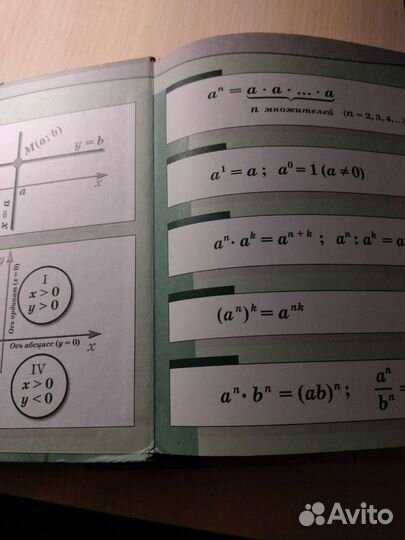 M(a; b)
y = b
x
a
x = a
y
Ось ординат (x = 0)
I
x > 0
y > 0
Ось абсцисс (y = 0)
x
IV
x > 0
y < 0
aⁿ = a · a · ... · a
n множителей (n = 2, 3, 4, ...)
a¹ = a ; a⁰ = 1 (a ≠ 0)
aⁿ · aᵏ = aⁿ⁺ᵏ ; aⁿ : aᵏ = a
(aⁿ)ᵏ = aⁿᵏ
aⁿ · bⁿ = (ab)ⁿ ; aⁿ/bⁿ =
Avito